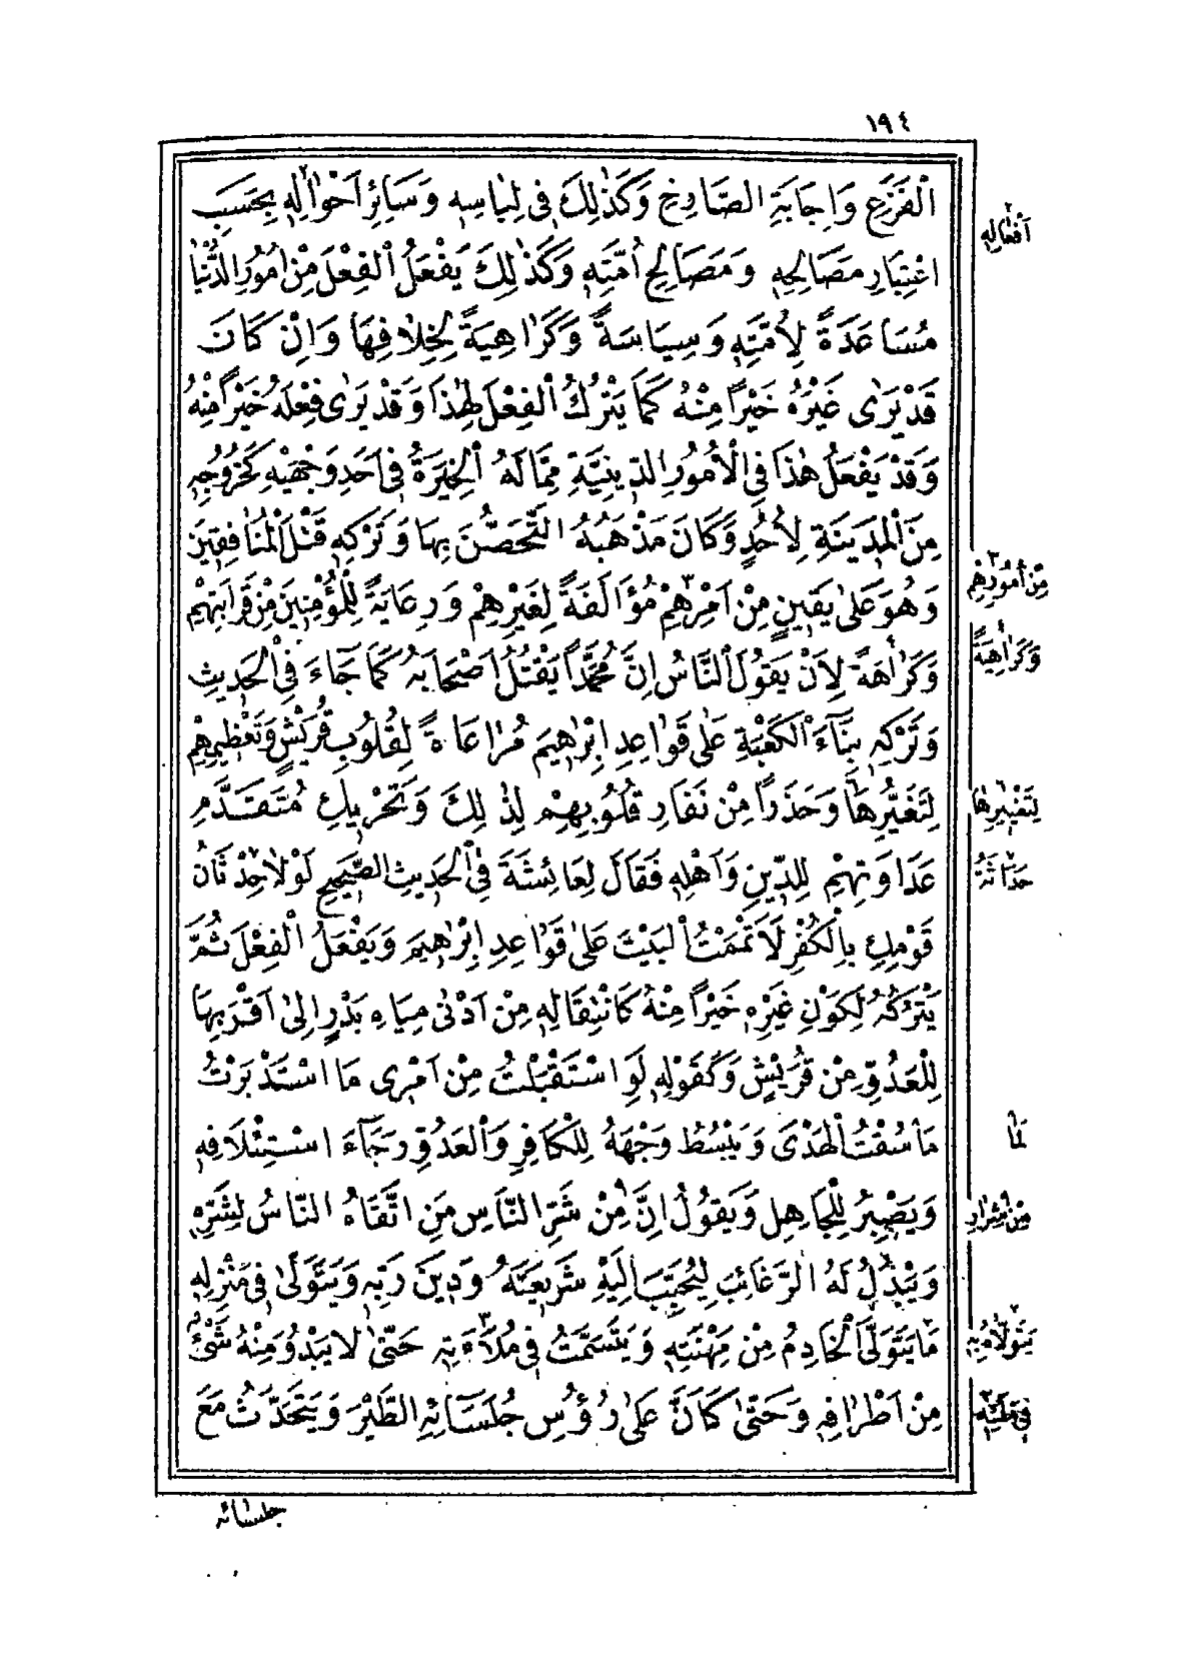 ١٩٤
الْفَزَعِ وَاِجَابَةِ الصَّارِخِ وَكَذٰلِكَ فِى لِبَاسِهِ وَسَائِرِ اَحْوَالِهِ بِحَسَبِ
اعْتِبَارِ مَصَالِحِهِ وَمَصَالِحِ اُمَّتِهِ وَكَذٰلِكَ يَفْعَلُ الْفِعْلَ مِنْ اُمُورِ الدُّنْيَا
مُسَاعَدَةً لِاُمَّتِهِ وَسِيَاسَةً وَكَرَاهِيَةً لِخِلَافِهَا وَاِنْ كَانَ
قَدْ يَرٰى غَيْرَهُ خَيْرًا مِنْهُ كَمَا يَتْرُكُ الْفِعْلَ لِهٰذَا وَقَدْ يَرٰى فِعْلَهُ خَيْرًا مِنْهُ
وَقَدْ يَفْعَلُ هٰذَا فِى الْاُمُورِ الدِّينِيَّةِ مِمَّا لَهُ الْخِيَرَةُ فِى اَحَدِ وَجْهَيْهِ كَخُرُوجِهِ
مِنَ الْمَدِينَةِ لِاُحُدٍ وَكَانَ مَذْهَبُهُ التَّحَصُّنَ بِهَا وَتَرْكِهِ قَتْلَ الْمُنَافِقِينَ
وَهُوَ عَلٰى يَقِينٍ مِنْ اَمْرِهِمْ مُؤَالَفَةً لِغَيْرِهِمْ وَرِعَايَةً لِلْمُؤْمِنِينَ مِنْ قَرَابَتِهِمْ
وَكَرَاهَةً لِاَنْ يَقُولَ النَّاسُ اِنَّ مُحَمَّدًا يَقْتُلُ اَصْحَابَهُ كَمَا جَاءَ فِى الْحَدِيثِ
وَتَرْكِهِ بِنَاءَ الْكَعْبَةِ عَلٰى قَوَاعِدِ اِبْرٰهِيمَ مُرَاعَاةً لِقُلُوبِ قُرَيْشٍ وَتَعْظِيمِهِمْ
لِتَغَيُّرِهَا وَحَذَرًا مِنْ نَفَارِ قُلُوبِهِمْ لِذٰلِكَ وَتَحْرِيكِ مُتَقَدَّمِ
عَدَاوَتِهِمْ لِلدِّينِ وَاَهْلِهِ فَقَالَ لِعَائِشَةَ فِى الْحَدِيثِ الصَّحِيحِ لَوْلَا حِدْثَانُ
قَوْمِكِ بِالْكُفْرِ لَاَتْمَمْتُ الْبَيْتَ عَلٰى قَوَاعِدِ اِبْرٰهِيمَ وَيَفْعَلُ الْفِعْلَ ثُمَّ
يَتْرُكُهُ لِكَوْنِ غَيْرِهِ خَيْرًا مِنْهُ كَانْتِقَالِهِ مِنْ اَدْنٰى مِيَاهِ بَدْرٍ اِلٰى اَقْرَبِهَا
لِلْعَدُوِّ مِنْ قُرَيْشٍ وَكَقَوْلِهِ لَوِ اسْتَقْبَلْتُ مِنْ اَمْرِى مَا اسْتَدْبَرْتُ
مَا سُقْتُ الْهَدْىَ وَيَبْسُطُ وَجْهَهُ لِلْكَافِرِ وَالْعَدُوِّ رَجَاءَ اسْتِئْلَافِهِ
وَيَصْبِرُ لِلْجَاهِلِ وَيَقُولُ اِنَّ مِنْ شَرِّ النَّاسِ مَنِ اتَّقَاهُ النَّاسُ لِشَرِّهِ
وَيَبْذُلُ لَهُ الرَّغَائِبَ لِيُحَبِّبَ اِلَيْهِ شَرِيعَتَهُ وَدِينَ رَبِّهِ وَيَتَوَلّٰى فِى مَنْزِلِهِ
مَا يَتَوَلَّى الْخَادِمُ مِنْ مِهْنَتِهِ وَيَتَسَمَّتُ فِى مُلَاءَتِهِ حَتّٰى لَا يَبْدُوَ مِنْهُ شَىْءٌ
مِنْ اَطْرَافِهِ وَحَتّٰى كَاَنَّ عَلٰى رُؤُسِ جُلَسَائِهِ الطَّيْرَ وَيَتَحَدَّثُ مَعَ
جلسائه
اَفْعَالِهِ
مِنْ اُمُورِهِمْ
وَكَرَاهِيَةً
لِتَغْيِيرِهَا
حَدَاثَةُ
لَمَا
مِنْ شِرَارِ